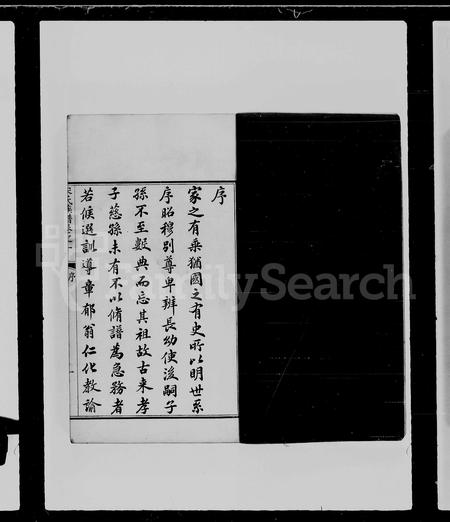 序
家之有乘猶國之有史所以明世系
序昭穆別尊卑辨長幼使後嗣子
孫不至數典而忘其祖故古來孝
子慈孫未有不以脩譜為急務者
若候選訓導章郁翁仁化教諭
氏族譜卷之一 序
FamilySearch